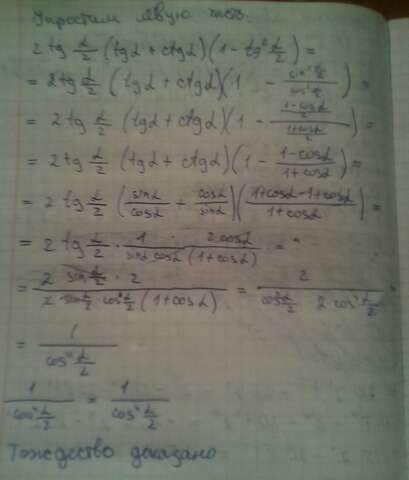 Упростим левую часть.
2 tg α/2 (tgα + ctgα)(1 - tg² α/2) =
= 2 tg α/2 (tgα + ctgα)(1 - sin² α/2 / cos² α/2) =
= 2 tg α/2 (tgα + ctgα)(1 - (1-cosα)/2 / (1+cosα)/2) =
= 2 tg α/2 (tgα + ctgα)(1 - (1-cosα)/(1+cosα)) =
= 2 tg α/2 (sinα/cosα + cosα/sinα)((1+cosα-1+cosα)/(1+cosα)) =
= 2 tg α/2 · 1/(sinα cosα) · 2cosα/(1+cosα) =
= 2 sin α/2 · 2 / (2 sin α/2 · cos² α/2 (1+cosα)) = 2/(cos² α/2 · 2·cos² α/2) =
= 1/cos⁴ α/2
1/cos⁴ α/2 = 1/cos⁴ α/2
Тождество доказано